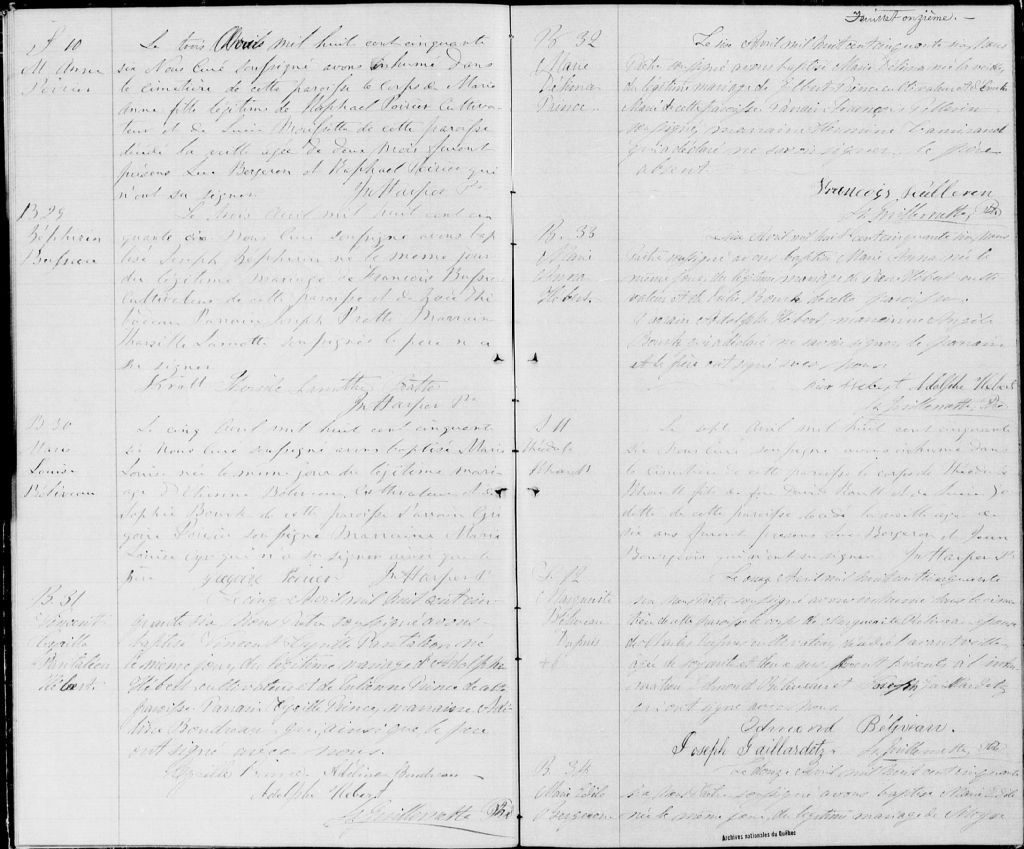 S 10
M. Anne
Poirier
Le trois Avril mil huit cent cinquante
six Nous Curé soussigné avons inhumé dans
le cimetière de cette paroisse le corps de Marie
Anne fille légitime de Raphael Poirier Cultiva-
teur et de Lucie de cette paroisse
décédé la veille agée de deux mois furent
présens Luc Bergeron et Raphael Poirier qui
n'ont su signer Jn Harper Ptre
B 29
Zéphirin
Le trois Avril mil huit cent cin
quante six Nous Curé soussigné avons bap
tisé Joseph Zéphirin né le même jour
du légitime mariage de François
Cultivateur de cette paroisse et de Zoé Thi
bodeau Parrain Joseph Pratte Marraine
Lamothe soussignés le père n'a
su signer
Lamothe Pratte
Jn Harper Ptre
B 30
Marie
Louise
Béliveau
Le cinq Avril mil huit cent cinquante
six Nous Curé soussigné avons baptisé Marie
Louise née le même jour du légitime mari-
age d'Etienne Béliveau Cultivateur et de
Sophie Bourk de cette paroisse Parrain Gré
goire Poirier soussigné Marraine Marie
Louise qui n'a su signer ainsi que le
père Grégoire Poirier Jn Harper Ptre
B. 31
Vincent
Cyrille
Pantaléon
Hébert
Le cinq Avril mil huit cent cin
quante six, Nous Prêtre soussigné avons
baptisé Vincent Cyrille Pantaléon né
le même jour du légitime mariage d'Adolphe
Hébert cultivateur et de Julienne Prince de cette
paroisse Parrain Cyrille Prince, marraine Adé
line Boudreau qui, ainsi que le père
ont signé avec nous.
Cyrille Prince Adéline Boudreau
Adolphe Hébert
Ptre
Feuillet onzième.
B. 32
Marie
Délima
Prince
Le six Avril mil huit cent cinquante six, Nous
Prêtre soussigné avons baptisé Marie Délima née la veille
du légitime mariage de Gilbert Prince cultivateur et de
Marie de cette paroisse Parrain François Pellerin
soussigné, marraine Hermine
qui a déclaré ne savoir signer. le père
absent.
François Pelleren
Ptre
B. 33
Marie
Anna
Hébert
Le six Avril mil huit cent cinquante six, Nous
Prêtre soussigné avons baptisé Marie Anna née le
même jour du légitime mariage de Hébert culti
vateur et de Julie Bourk de cette paroisse.
Parrain Adolphe Hébert, marraine
Bourk qui a déclaré ne savoir signer, le parrain
et le père ont signé avec nous.
Hébert Adolphe Hébert
Ptre
S 11
Le sept Avril mil huit cent cinquante
six Nous Curé soussigné avons inhumé dans
le Cimetière de cette paroisse le corps de
fils de feu David et de Lucie
de cette paroisse décédé la veille agé de
six ans furent présens Luc Bergeron et Jean
Bourgeois qui n'ont su signer Jn Harper Ptre
S. 12
Marguerite
Béliveau
Dupuis
Le douze Avril mil huit cent cinquante
six, Nous Prêtre soussigné avons inhumé dans le cime
tière de cette paroisse le corps de Marguerite Béliveau, épouse
de Charles Dupuis cultivateur, décédé
agée de soixante et deux ans. furent présents à l'inhu
mation Edmond Béliveau et Joseph Gaillardetz
qui ont signé avec nous.
Edmond Béliveau.
Joseph Gaillardetz Ptre
B. 34
Marie
Bergeron
Le douze Avril mil huit cent cinquante
six, Nous Prêtre soussigné avons baptisé Marie
née le même jour, du légitime mariage de
Archives nationales du Québec